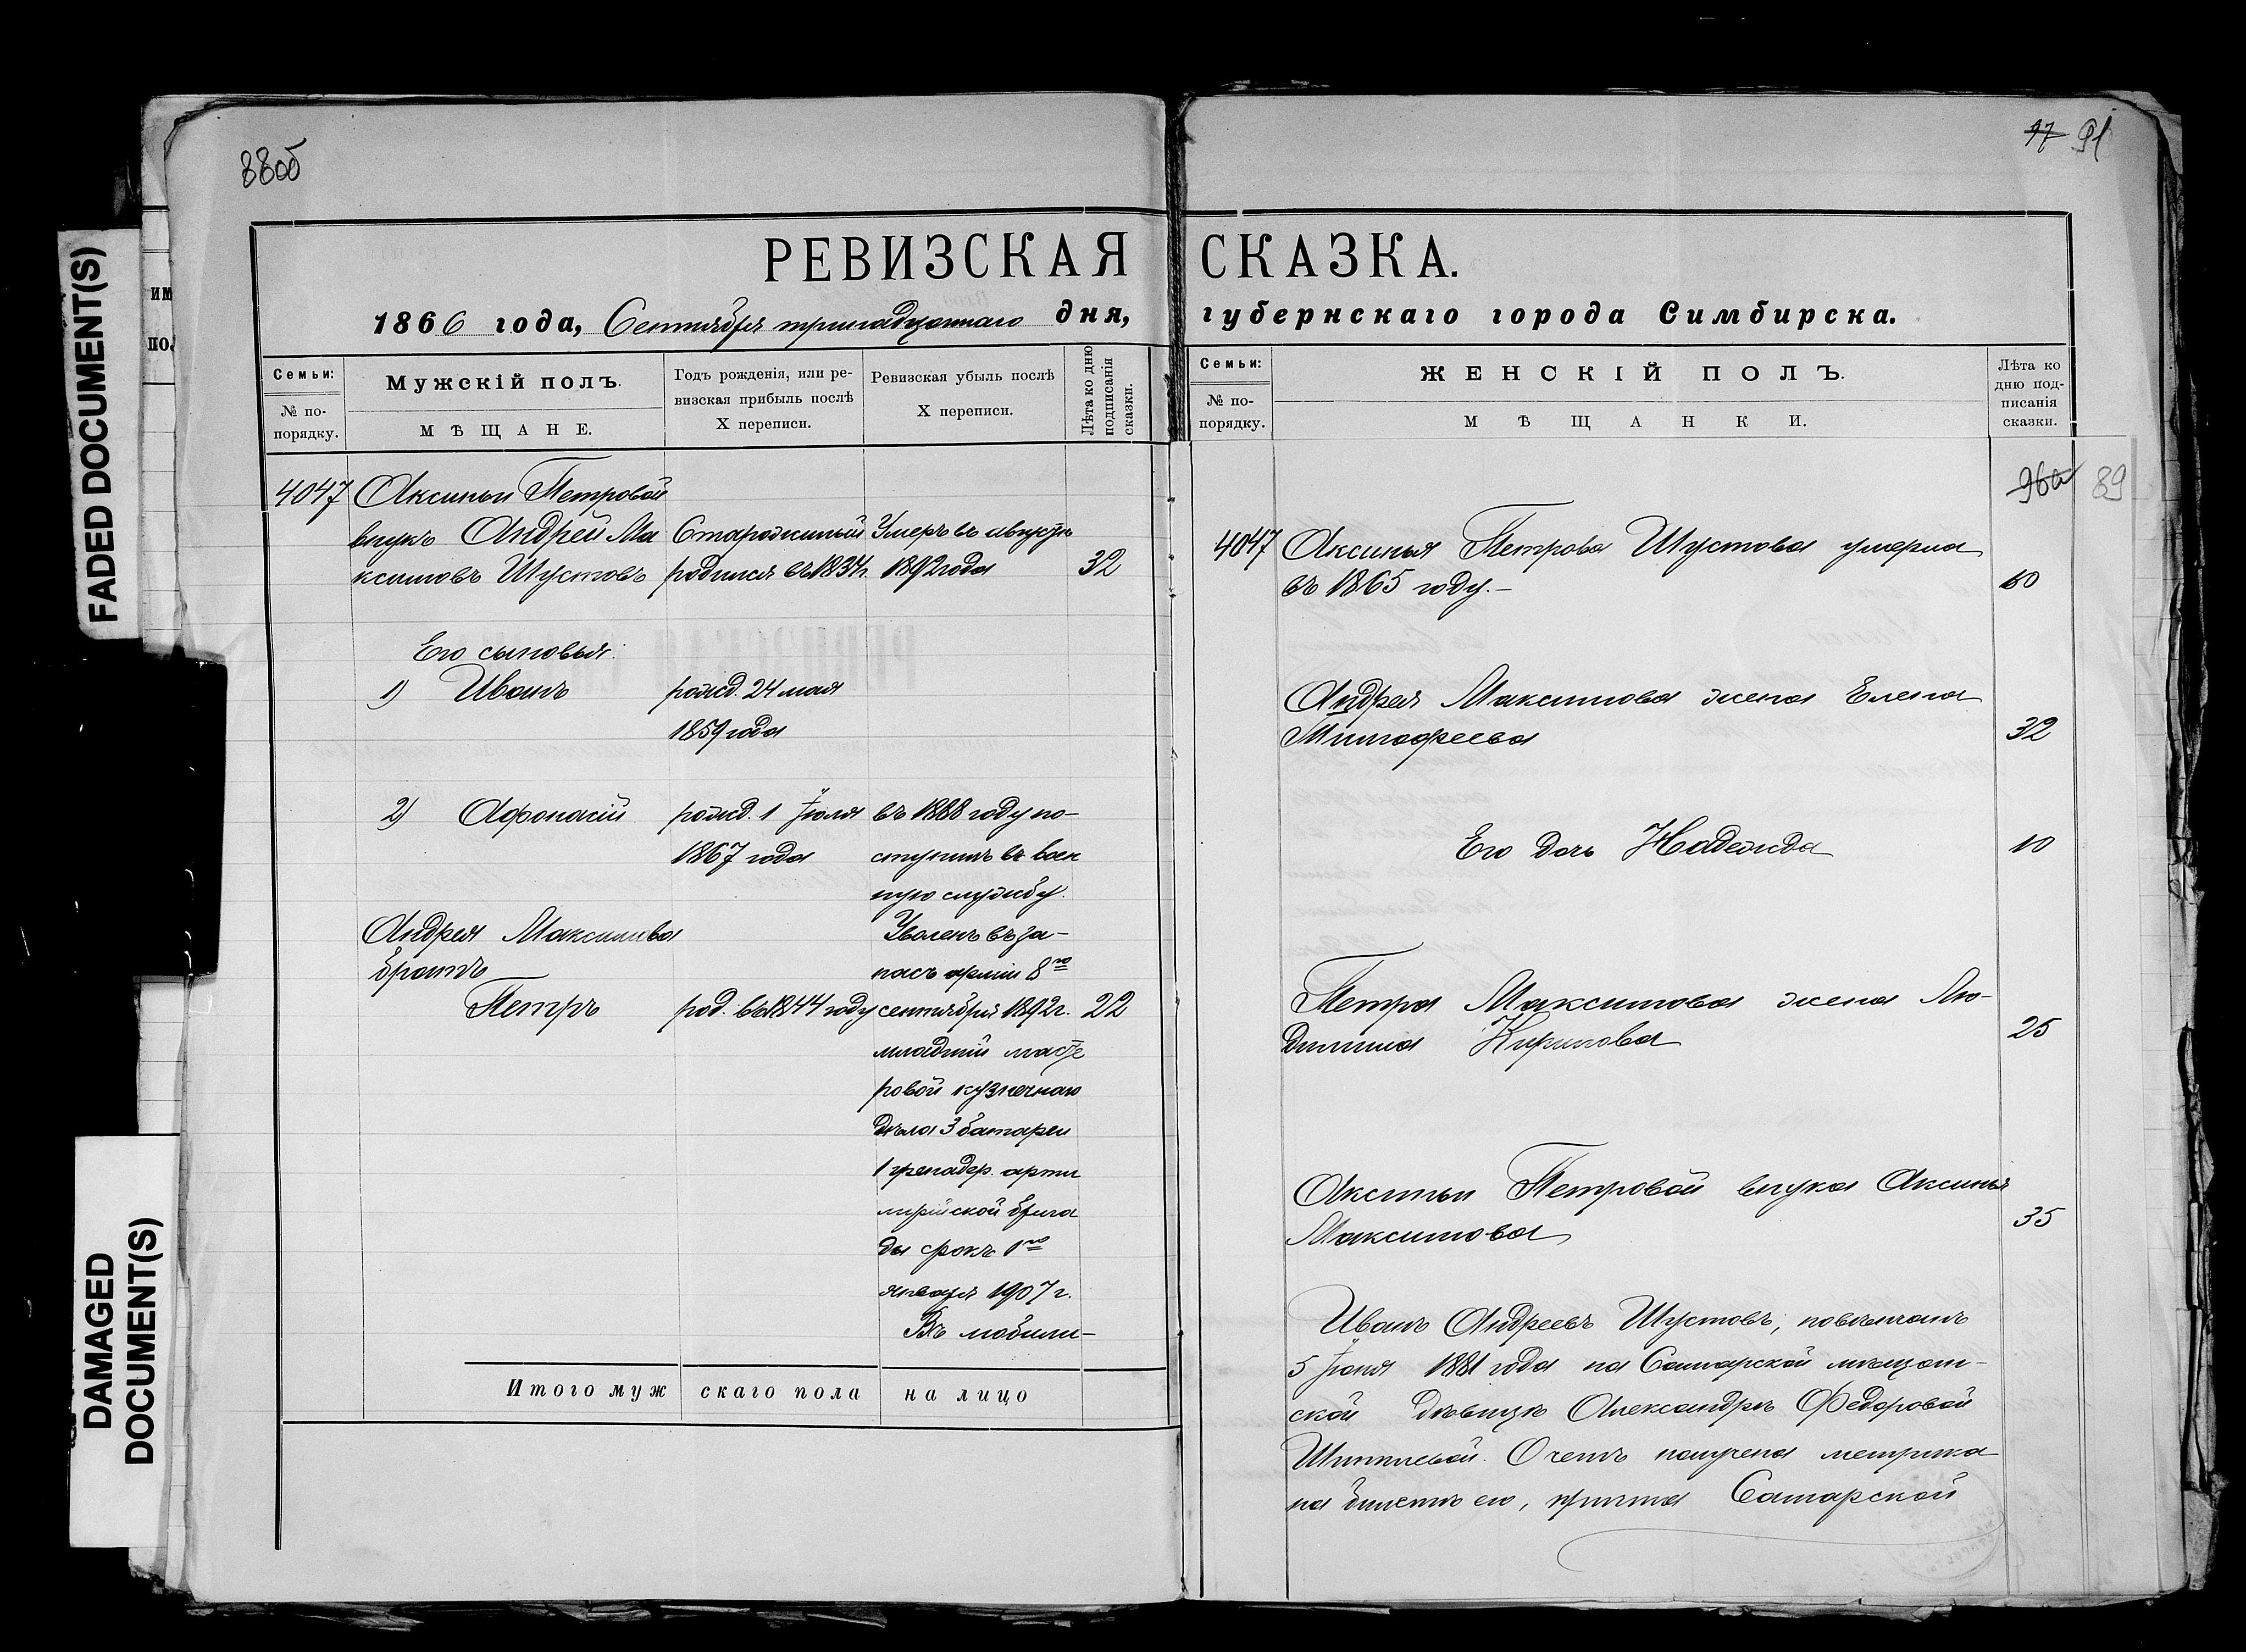 FADED DOCUMENT(S)
DAMAGED
DOCUMENT(S)
ИМ
ПО
88об
РЕВИЗСКАЯ
1866 года, Сентября тринадцатаго дня,
Семьи:
№ по-
порядку.
Мужскій полъ.
МѢЩАНЕ.
Годъ рожденія, или ре-
визская прибыль послѣ
X переписи.
Ревизская убыль послѣ
X переписи.
Лѣта ко дню
подписанія
сказки.
4047 Аксиньи Петровой
внукъ Андрей Ма Старожилый Умеръ въ августѣ
ксимовъ Шустовъ родился въ 1834 г. 1892 года 32
Его сыновья:
1) Иванъ рожд. 24 мая
1859 года
2) Афонасій рожд. 1 Іюля въ 1888 году по-
1867 года ступилъ въ воен
ную службу.
Андрея Максимова Уволенъ въ за-
братъ пасъ арміи 8го
Петръ род. въ 1844 году сентября 1892 г. 22
младшій масте
ровой кузнечнаго
дѣла 3 батареи
1 гренадер. арти
лерійской брига
ды срокъ 1го
января 1907 г.
Въ мобили-
Итого мужскаго пола на лицо
97 91
СКАЗКА.
губернскаго города Симбирска.
Семьи:
№ по-
порядку.
ЖЕНСКІЙ ПОЛЪ.
МѢЩАНКИ.
Лѣта ко
дню под-
писанія
сказки.
89
4047 Аксинья Петрова Шустова умерла
въ 1865 году.- 60
Андрея Максимова жена Елена
Тимофеева 32
Его дочь Надежда 10
Петра Максимова жена Лю-
дмила Кирилова 25
Аксиньи Петровой внука Аксинья
Максимова 35
Иванъ Андреевъ Шустовъ, повѣнчанъ
5 Іюня 1881 года на Самарской мѣщан-
ской дѣвицѣ Александрѣ Федоровой
О чемъ получена метрика
на билетъ его, причта Самарской